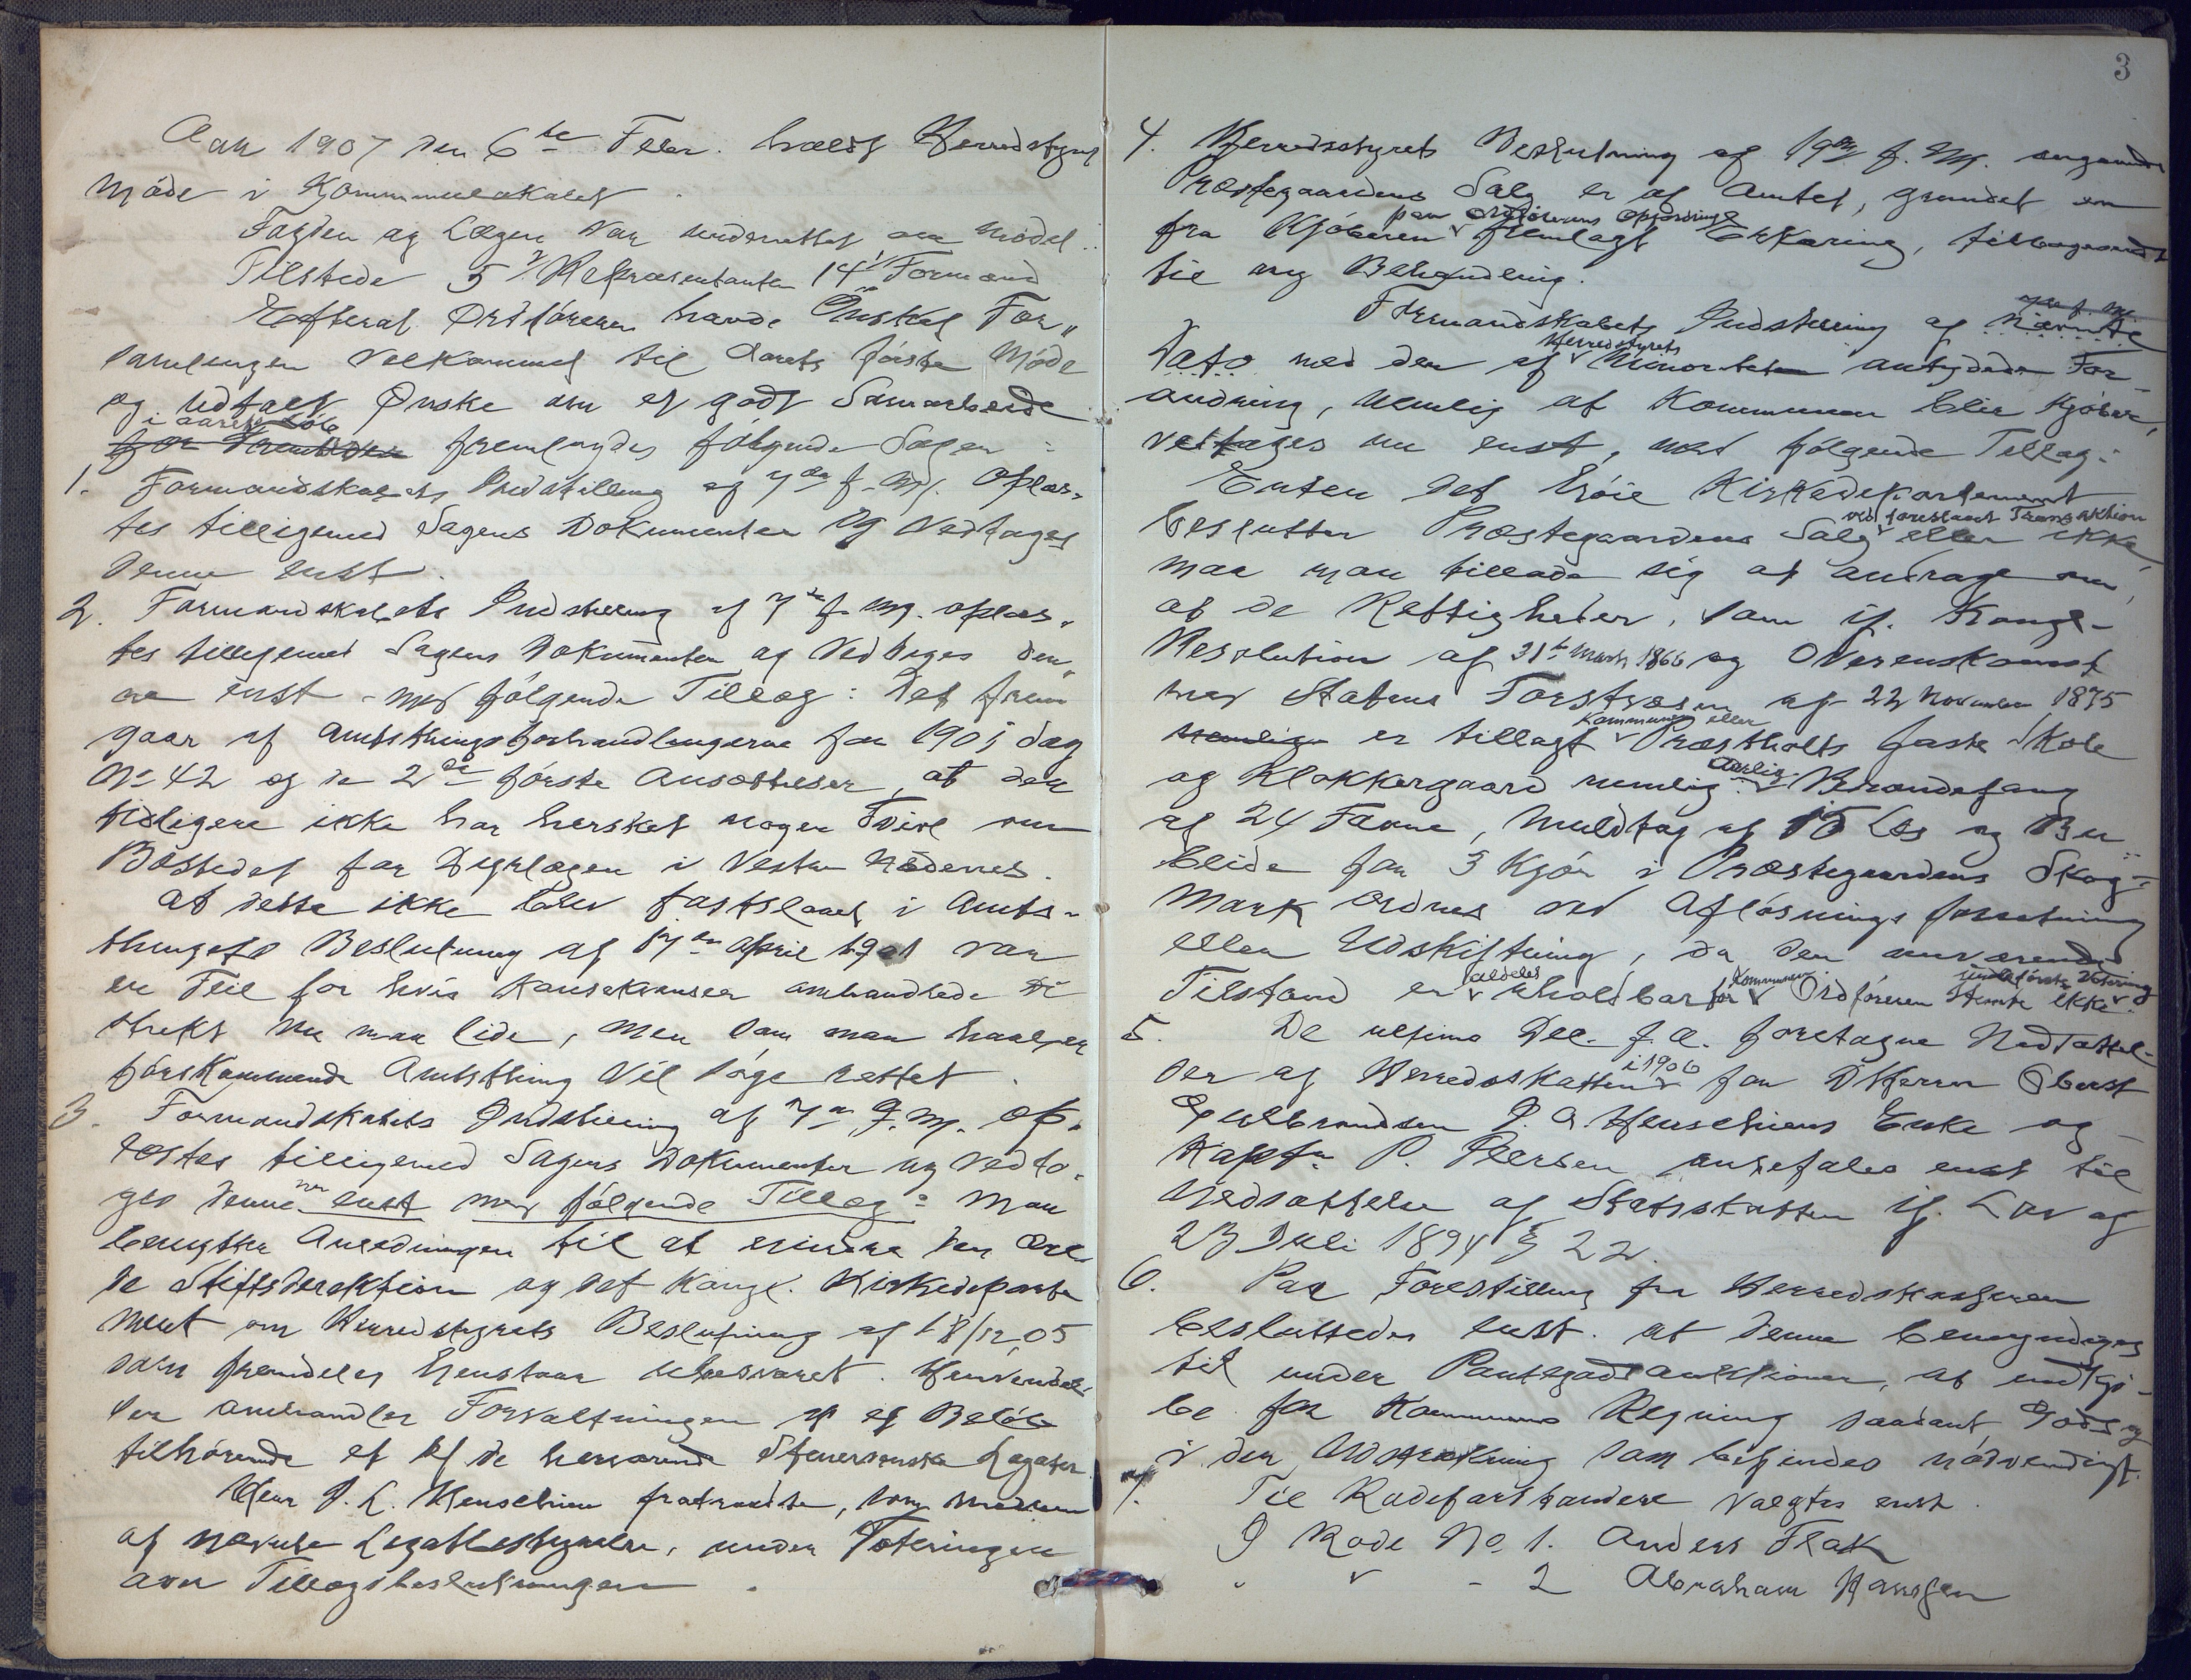 Aar 1907 den 6te Febr. holdt Herredstyret
Møde i Kommunelokalet.
Fogden og Lægen var underrettet om Mødet.
Tilstede 5 Repræsentanter 14 Formænd
Efterat Ordføreren havde Ønsket For„
samlingen Velkommet til Aarets første Møde
og udtalt Ønske om et godt Samarbeide
i aarets Løb
for Fremtiden fremlagdes følgende Sager:
1. Formandskabets Indstilling af 7de f. M. oplæs„
tes tilligemed Sagens Dokumenter og Vedtages
denne enst.
2. Formandskabets Indstilling af 7de f. M. oplæs„
tes tilligemed Sagens Dokumenter og Vedtages den„
ne enst – med følgende Tillæg: Det frem
gaar af Amtsthingsforhandlingerne for 1901 Sag
No 42 og de 2de første Ansættelser, at der
tidligere ikke har hersket nogen Tvivl om
Bostedet for Digrlægen i Vestre Nedenes.
At dette ikke blev fastslaaet i Amts„
thingets Beslutning af 17de April 1901 var
en Feil for hvis Konsekvenser omhandlede Di
strikt nu maa lide, men som man haaber
førskommende Amtsthing Vil søge rettet.
3. Formandskabets Indstilling af 7de f. M. op„
læstes tilligemed Sagens Dokumenter og vedto„
ges denne enst med følgende Tillæg: Man
benytter Anledningen til at erindre den Ær
de Stiftsdirektion og det Kongl. Kirkedeparte
ment om Herredstyrets Beslutning af 18/12 05
som fremdeles henstaar ubesvaret. Henvendel„
sen omhandler Forvaltningen af et Beløb
tilhørende et af de herværende Legater
Herr J. C. Henschien fratraadte, som Medlem
af nævnte Legatbestyrelse, under Voteringen
over Tillægsbeslutningen.
3
4. Herredsstyrets Beslutning af 19de f. M. angaaende
Præstegaardens Salg er af Amtet, grundet en
paa Ordførerens Opfordring
fra Kjøberen fremlagt Erklæring, tilbagesendt
til ny Behandling.
Formandskabets Indstilling af nævnte
Herredstyrets
Dato med den af Minoriteten antydede For„
andring, nemlig at Kommunen blir Kjøber,
vedtages nu enst, med følgende Tillæg:
Enten det høie Kirkedepartement
ved foreslaaet Transaktion
beslutter Præstegaardens Salg eller ikke,
maa man tillade sig at andrage om,
at de Rettigheder, som if. Kongl–
Resolution af 31te Marts 1866 og Overenskomst
med Statens Forstvæsen af 22 November 1875
Kommunen eller
nemlig er tillagt Præstholts faste Skole
aarlig
og Klokkergaard nemlig Brændefang
af 24 Favne, Muldtag af 15 Læs og Bu
beide for 3 Kjør i Præstegaardens Skog„
mark ordnes ved Afløsnings forretning
eller Udskiftning, da den nuværende
aldeles Kommunen
Tilstand er uholdbar for Ordføreren stemte ikke
5. De ultimo Dec. f. A. foretagne Nedsættel„
i 1906
ser af Herredsskatten for DHerrer Oberst
Gulbrandsen J. A. Henschiens Enke og
Kaptn P. Persen anbefales enst til
Nedsættelse af Statsskatten if. Lov af
23 Juli 1894 § 22.
6. Paa Forestilling fra Herredskasseren
besluttedes enst. at denne bemyndiges
til under Pantegodtauktioner, at indkjø„
be for Kommunens Regning saadant Gods og
i den Udstrækning som befindes nødvendigt.
7. Til Rodeforstandere valgtes enst.
I Rode No. 1. Anders Flak
" " – 2 Abraham Hansen